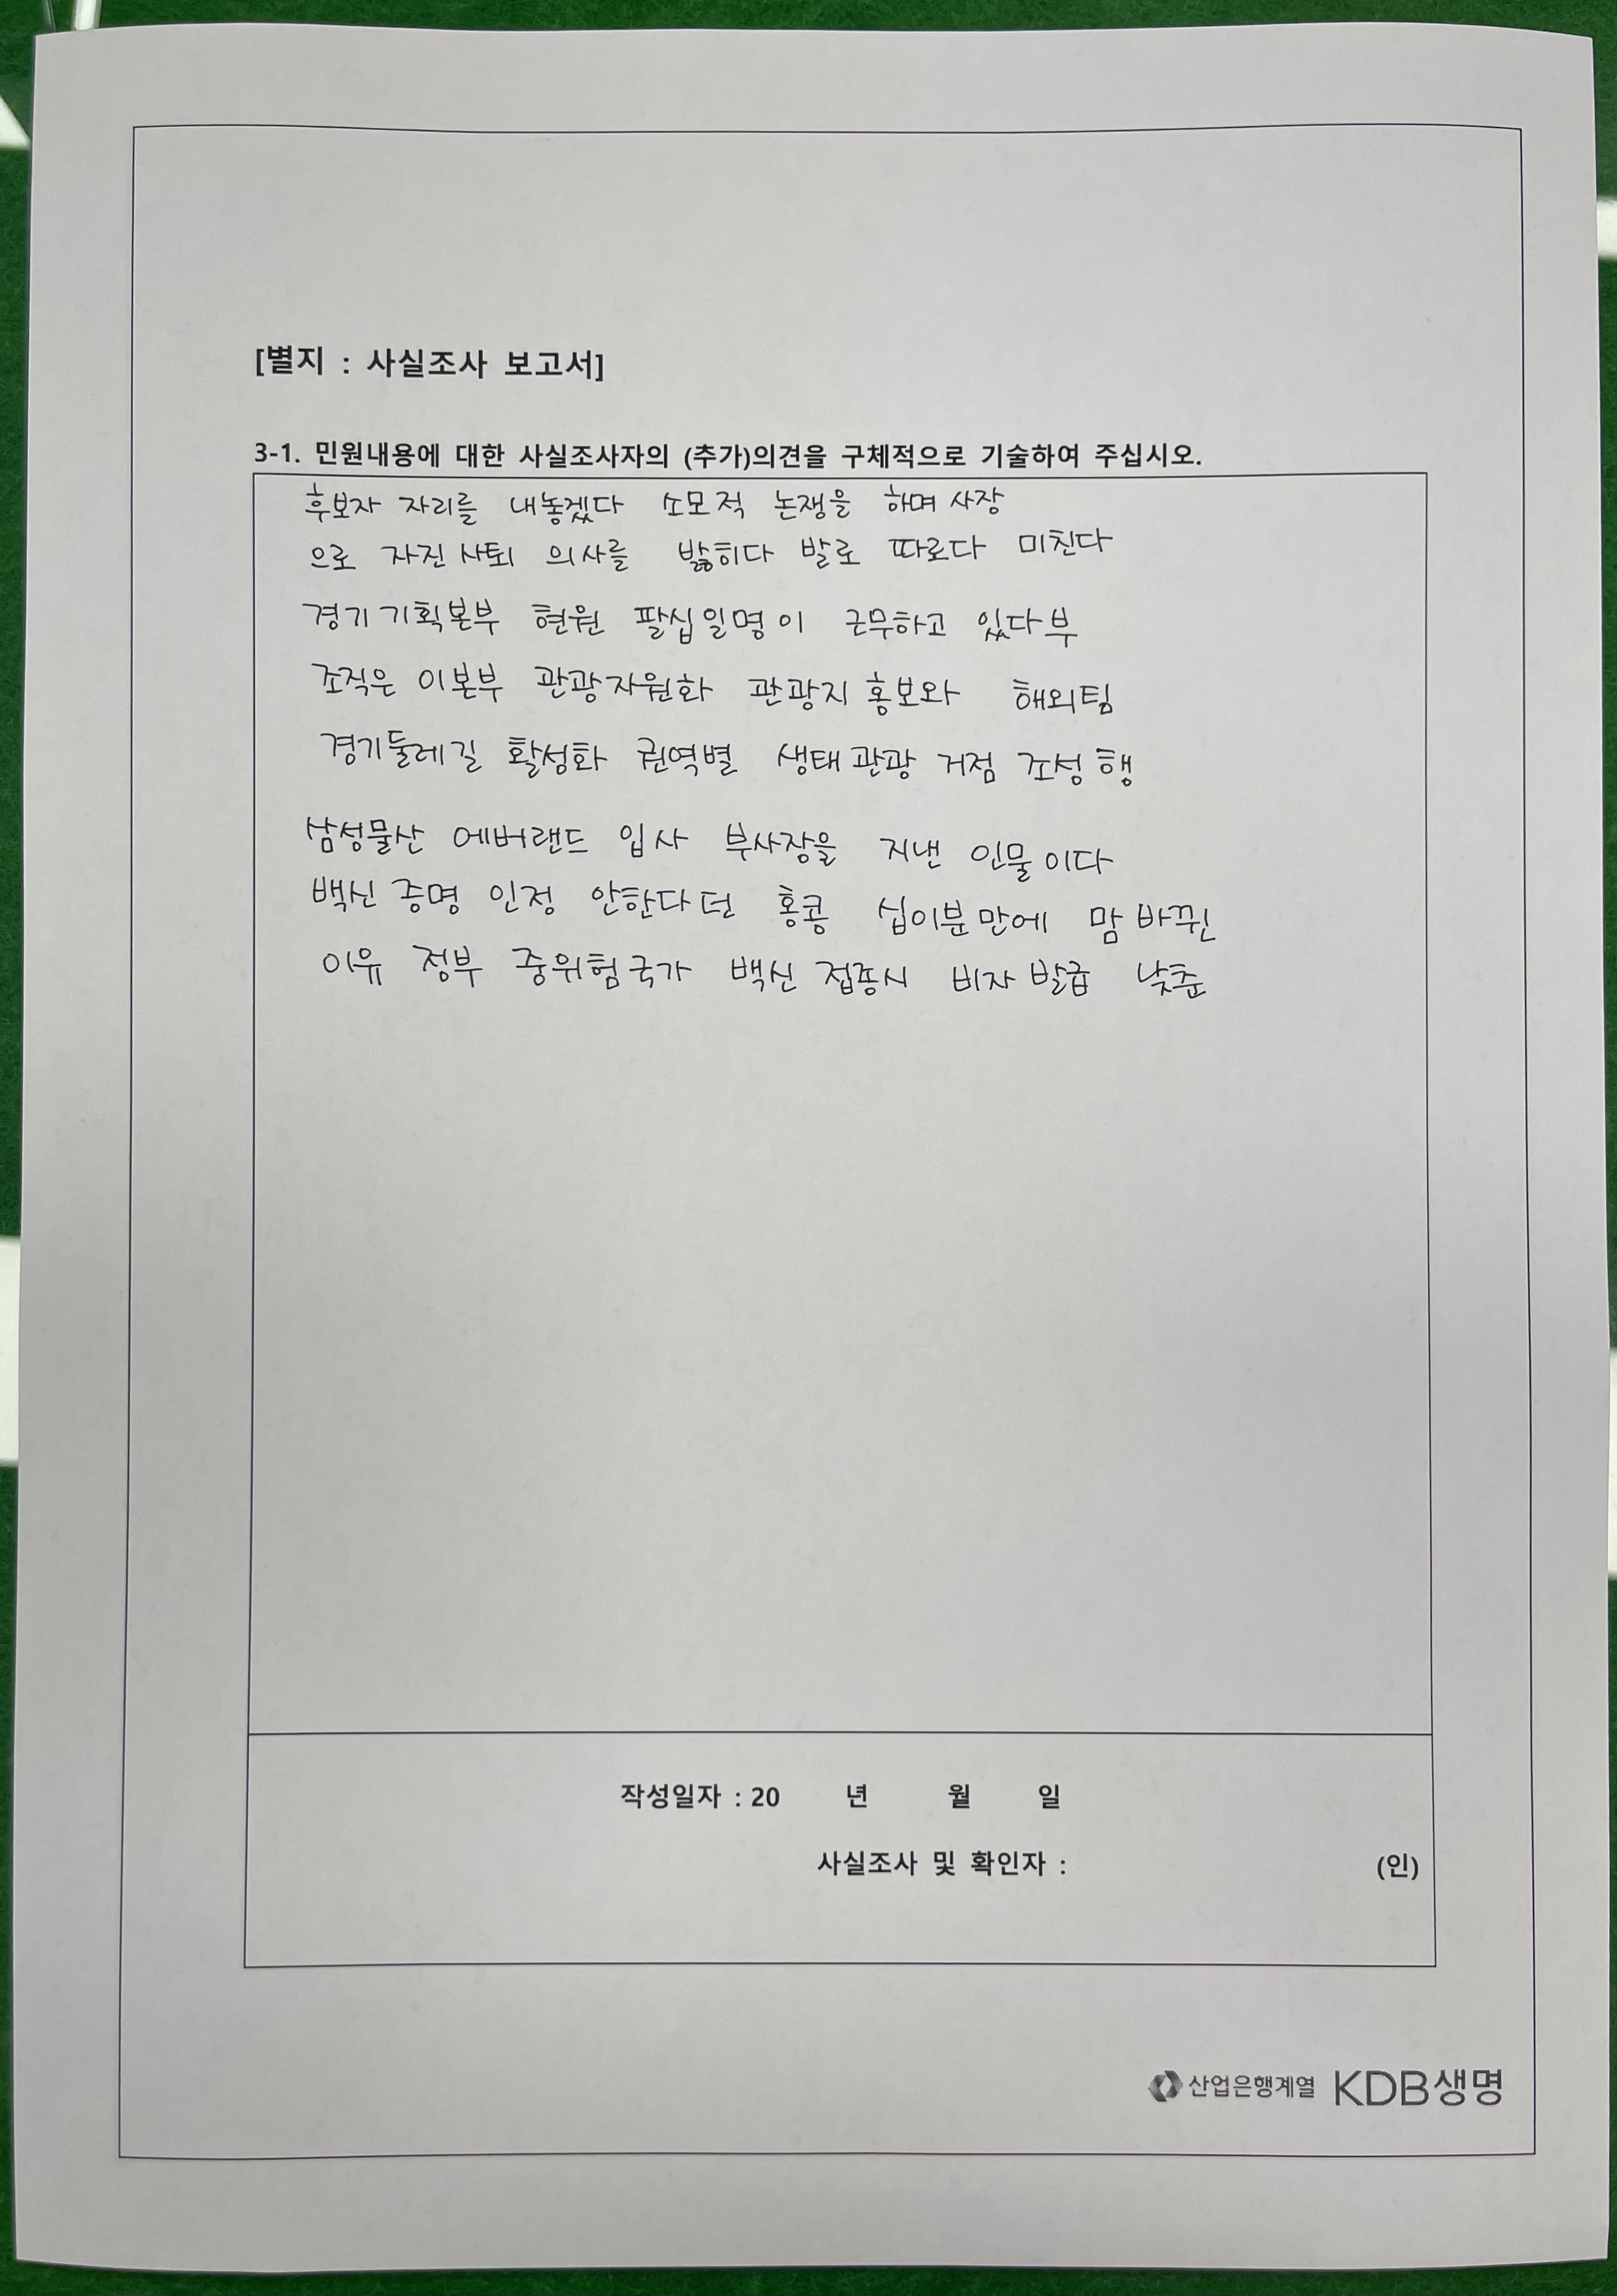 [별지 : 사실조사 보고서]
3-1. 민원내용에 대한 사실조사자의 (추가)의견을 구체적으로 기술하여 주십시오.
후보자 자리를 내놓겠다 소모적 논쟁을 하며 사장
으로 자진 사퇴 의사를 밣히다 발로 따로다 미친다
경기 기획본부 현원 팔십일명이 근무하고 있다 부
조직은 이본부 관광자원화 관광지 홍보와 해외팀
경기둘레길 활성화 권역별 생태관광 거점 조성 행
삼성물산 에버랜드 입사 부사장을 지낸 인물이다
백신 증명 인정 안한다던 홍콩 십이분만에 맘 바뀐
이유 정부 중위험국가 백신 접종시 비자 발급 낮춘
작성일자 : 20 년 월 일
사실조사 및 확인자 : (인)
산업은행계열 KDB생명